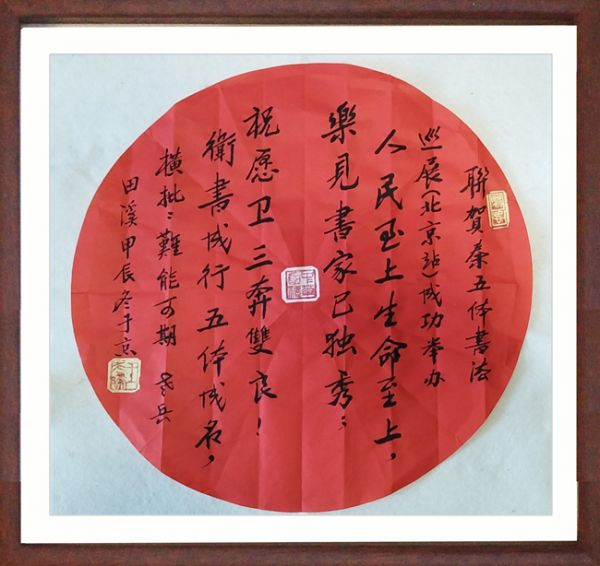 聯賀秦五体書法
巡展(北京站)成功举办
人民至上生命至上，
樂見書家已独秀；
祝愿卫三奔雙良！
衛書成行五体成名，
橫批：難能可期
田溪甲辰冬于京